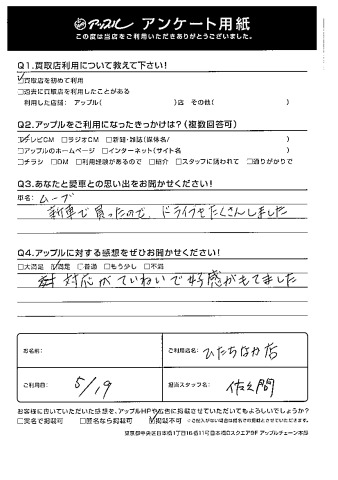 アップル アンケート用紙
この度は当店をご利用いただきありがとうございました。
Q1.買取店利用について教えて下さい!
☑買取店を初めて利用
□過去に買取店を利用したことがある
利用した店舗: アップル( )店 その他( )
Q2.アップルをご利用になったきっかけは?(複数回答可)
☑テレビCM □ラジオCM □新聞・雑誌(媒体名/ )
□アップルのホームページ □インターネット(サイト名 )
□チラシ □DM □利用経験があるので □紹介 □スタッフに誘われて □通りがかりで
Q3.あなたと愛車との思い出をお聞かせください!
車名: ムーブ
新車で買ったので、ドライブをたくさんしました
Q4.アップルに対する感想をぜひお聞かせください!
□大満足 ☑満足 □普通 □もう少し □不満
対応がていねいで好感がもてました
お名前:
ご利用店名: ひたちなか店
ご利用日: 5/19
担当スタッフ名: 佐久間
お客様に書いていただいた感想を、アップルHPや広告に掲載させていただいてもよろしいでしょうか?
□実名で掲載可 □匿名なら掲載可 ☑掲載不可 ※ご記入がない場合は匿名での掲載とさせていただきます。
東京都中央区日本橋1丁目16番11号日本橋Dスクエア9F アップルチェーン本部